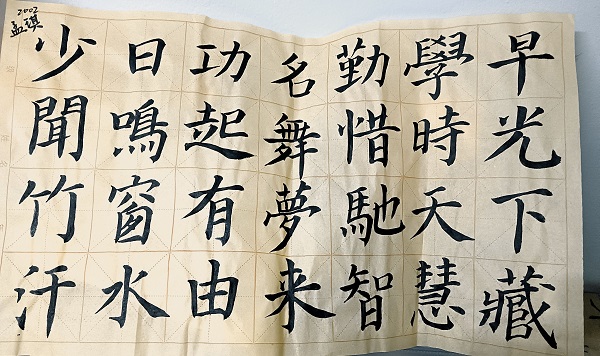 2002
孟琪
少日功名勤學早
聞鳴起舞惜時光
竹窗有夢馳天下
汗水由来智慧藏